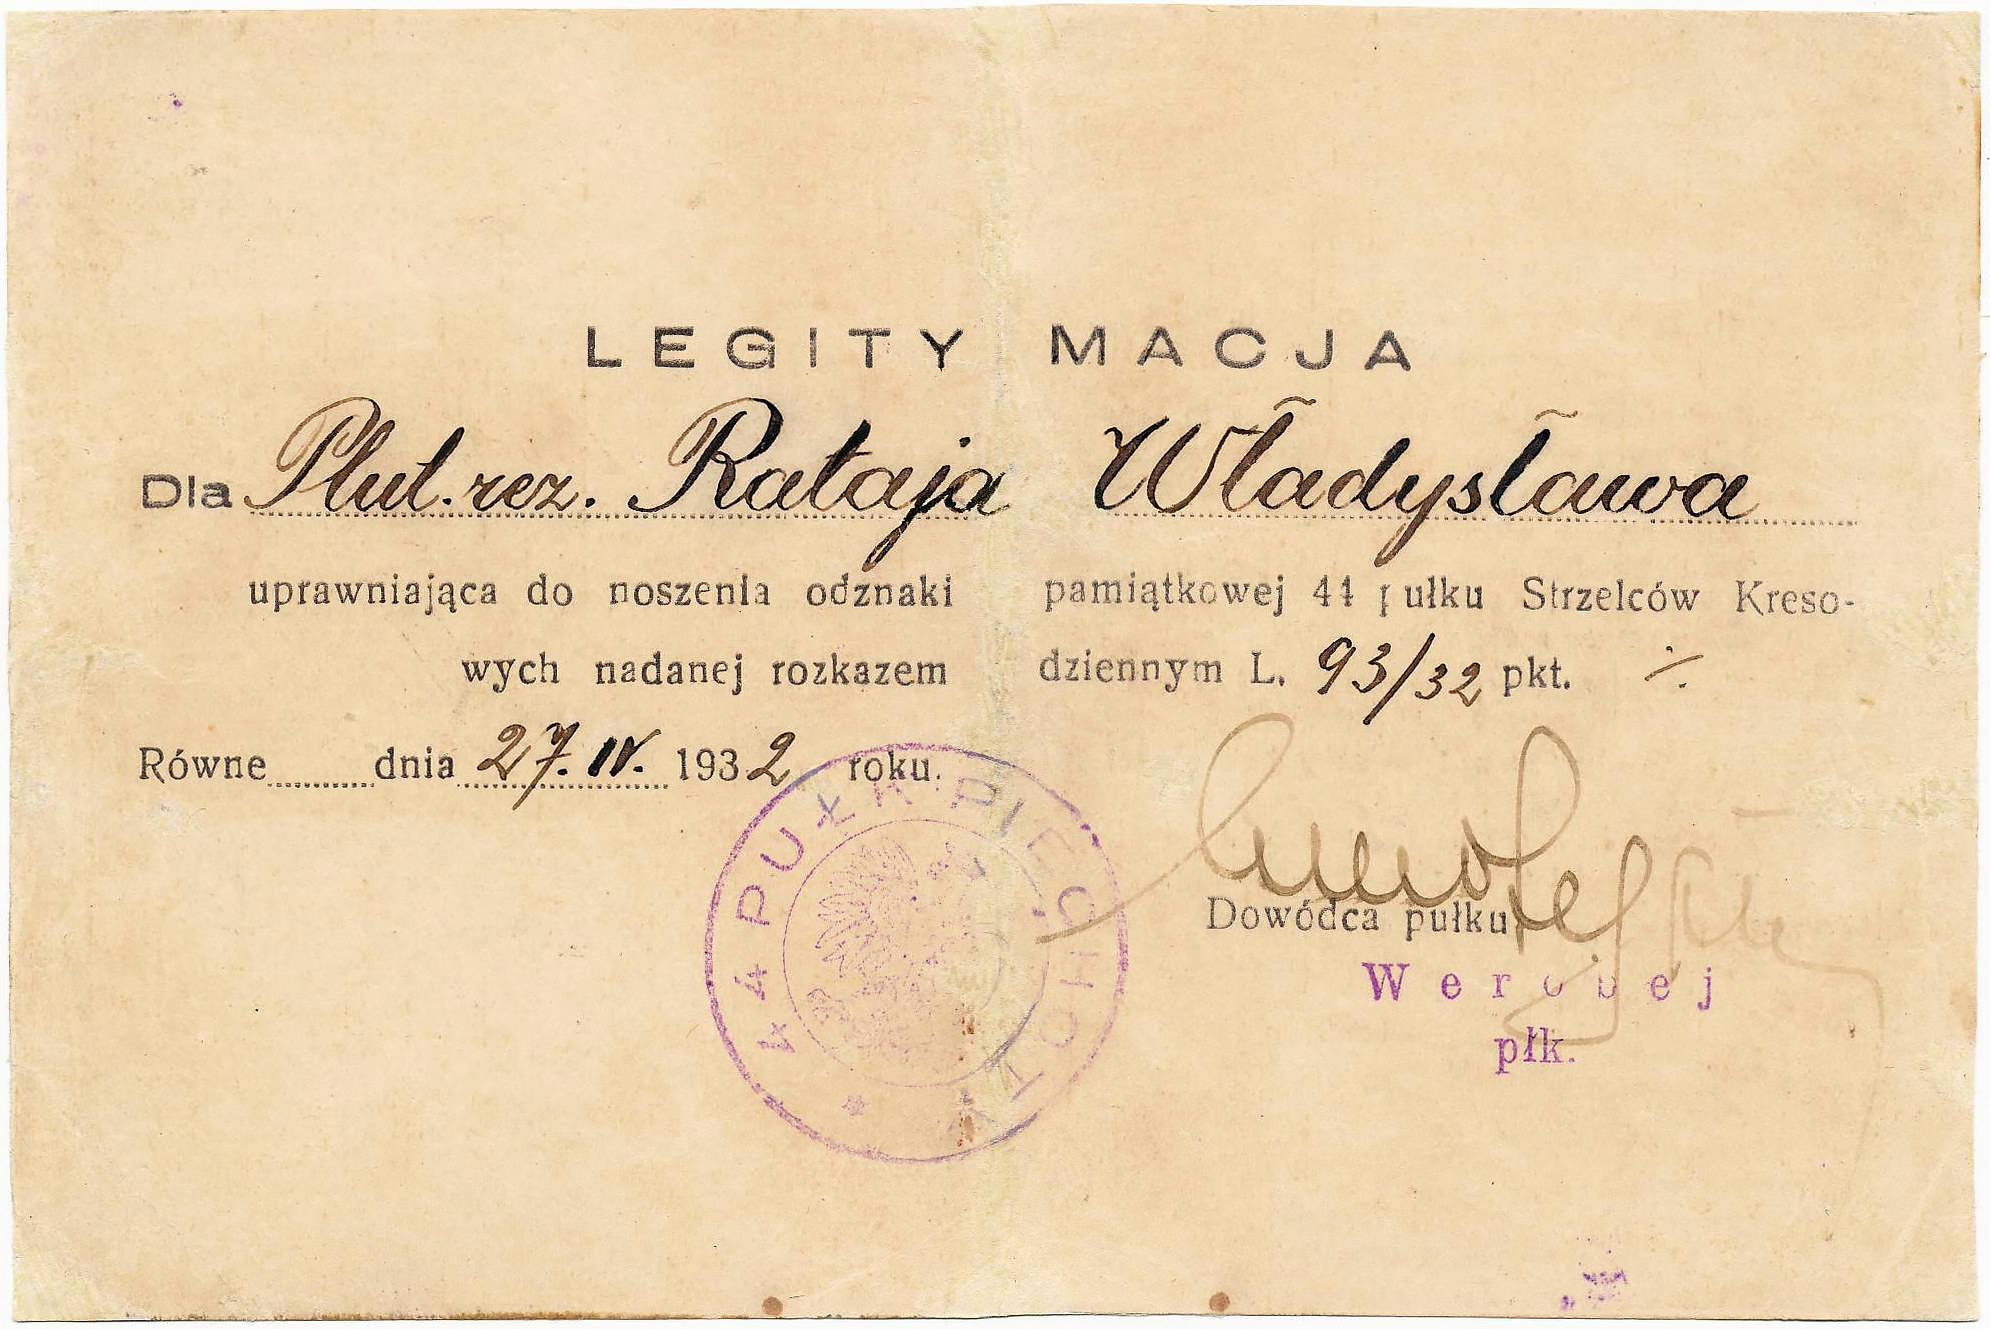 LEGITYMACJA
Dla Plut. rez. Rataja Władysława
uprawniająca do noszenia odznaki pamiątkowej 44 pułku Strzelców Kreso-
wych nadanej rozkazem dziennym L. 93/32 pkt. ./.
Równe dnia 27. IV. 1932 roku.
44 PUŁK PIECHOTY *
Dowódca pułku
Werobej
płk.